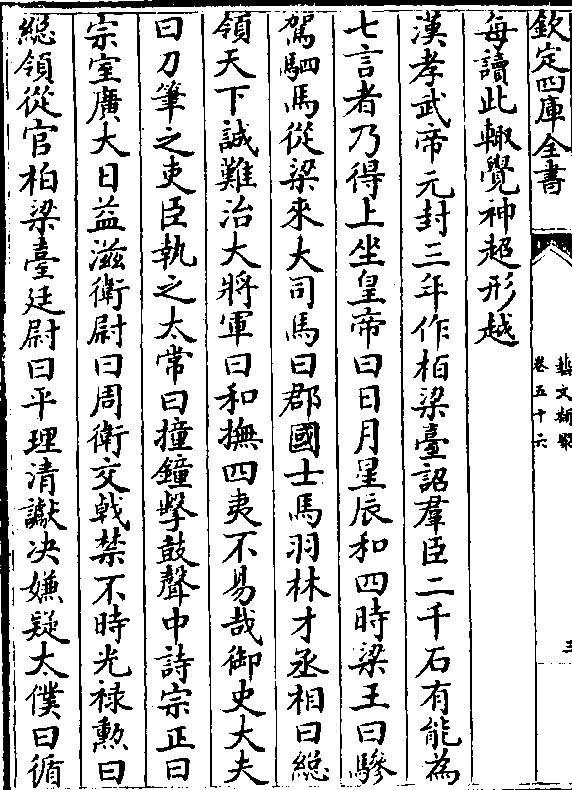 欽定四庫全書
藝文類聚
卷五十六
三
每讀此輙覺神超形越
漢孝武帝元封三年作柏梁臺詔羣臣二千石有能為
七言者乃得上坐皇帝曰日月星辰和四時梁王曰驂
駕駟馬從梁來大司馬曰郡國士馬羽林才丞相曰緫
領天下誠難治大將軍曰和撫四夷不易哉御史大夫
曰刀筆之吏臣執之太常曰撞鐘擊鼓聲中詩宗正曰
宗室廣大日益滋衛尉曰周衛交㦸禁不時光禄勲曰
緫領從官柏梁臺廷尉曰平理清讞决嫌疑太僕曰循